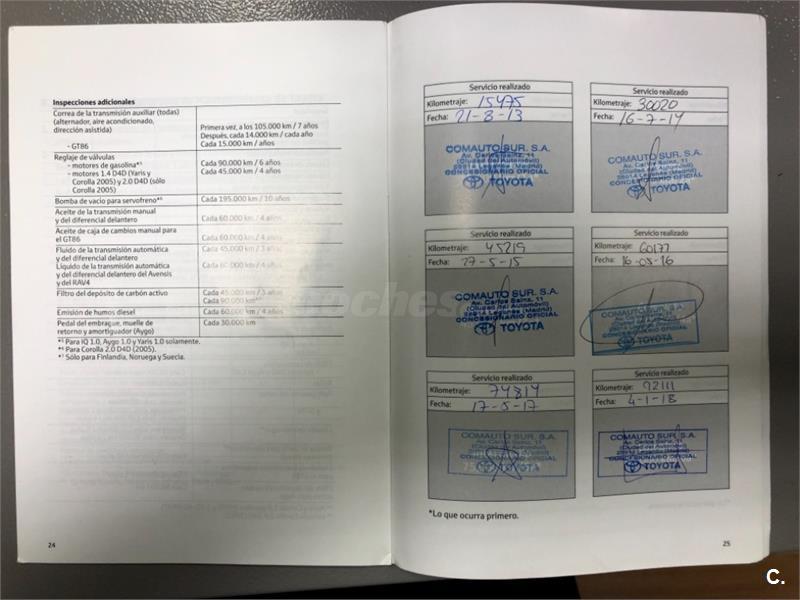 Inspecciones adicionales
Correa de la transmisión auxiliar (todas)
(alternador, aire acondicionado,
dirección asistida)
Primera vez, a los 105.000 km / 7 años
Después, cada 14.000 km / cada año
- GT86
Cada 15.000 km / años
Reglaje de válvulas
- motores de gasolina*⁵
Cada 90.000 km / 6 años
- motores 1.4 D4D (Yaris y
Cada 45.000 km / 4 años
Corolla 2005) y 2.0 D4D (sólo
Corolla 2005)
Bomba de vacío para servofreno*⁶
Cada 195.000 km / 10 años
Aceite de la transmisión manual
y del diferencial delantero
Cada 60.000 km / 4 años
Aceite de caja de cambios manual para
el GT86
Cada 60.000 km / 4 años
Fluido de la transmisión automática
y del diferencial delantero
Cada 45.000 km / 3 años
Líquido de la transmisión automática
y del diferencial delantero del Avensis
y del RAV4
Cada 60.000 km / 4 años
Filtro del depósito de carbón activo
Cada 45.000 km / 3 años
Cada 90.000 km
Emisión de humos diesel
Cada 60.000 km / 4 años
Pedal del embrague, muelle de
retorno y amortiguador (Aygo)
Cada 30.000 km
*⁵ Para IQ 1.0, Aygo 1.0 y Yaris 1.0 solamente.
*⁶ Para Corolla 2.0 D4D (2005).
*⁷ Sólo para Finlandia, Noruega y Suecia.
24
Servicio realizado
Kilometraje: 15475
Fecha: 21-8-13
COMAUTO SUR, S.A.
Av. Carlos Sainz, 11
(Ciudad del Automóvil)
28914 Leganés (Madrid)
CONCESIONARIO OFICIAL
TOYOTA
Servicio realizado
Kilometraje: 30020
Fecha: 16-7-14
COMAUTO SUR, S.A.
Av. Carlos Sainz, 11
(Ciudad del Automóvil)
28914 Leganés (Madrid)
CONCESIONARIO OFICIAL
TOYOTA
Servicio realizado
Kilometraje: 45219
Fecha: 27-5-15
COMAUTO SUR, S.A.
Av. Carlos Sainz, 11
(Ciudad del Automóvil)
28914 Leganés (Madrid)
CONCESIONARIO OFICIAL
TOYOTA
Servicio realizado
Kilometraje: 60177
Fecha: 16-05-16
COMAUTO SUR, S.A.
Av. Carlos Sainz, 11
(Ciudad del Automóvil)
28914 Leganés (Madrid)
CONCESIONARIO OFICIAL
TOYOTA
Servicio realizado
Kilometraje: 74814
Fecha: 17-5-17
COMAUTO SUR, S.A.
Av. Carlos Sainz, 11
(Ciudad del Automóvil)
CONCESIONARIO OFICIAL
TOYOTA
Servicio realizado
Kilometraje: 92111
Fecha: 4-1-18
COMAUTO SUR, S.A.
Av. Carlos Sainz, 11
(Ciudad del Automóvil)
28914 Leganés (Madrid)
CONCESIONARIO OFICIAL
TOYOTA
*Lo que ocurra primero.
25
C.